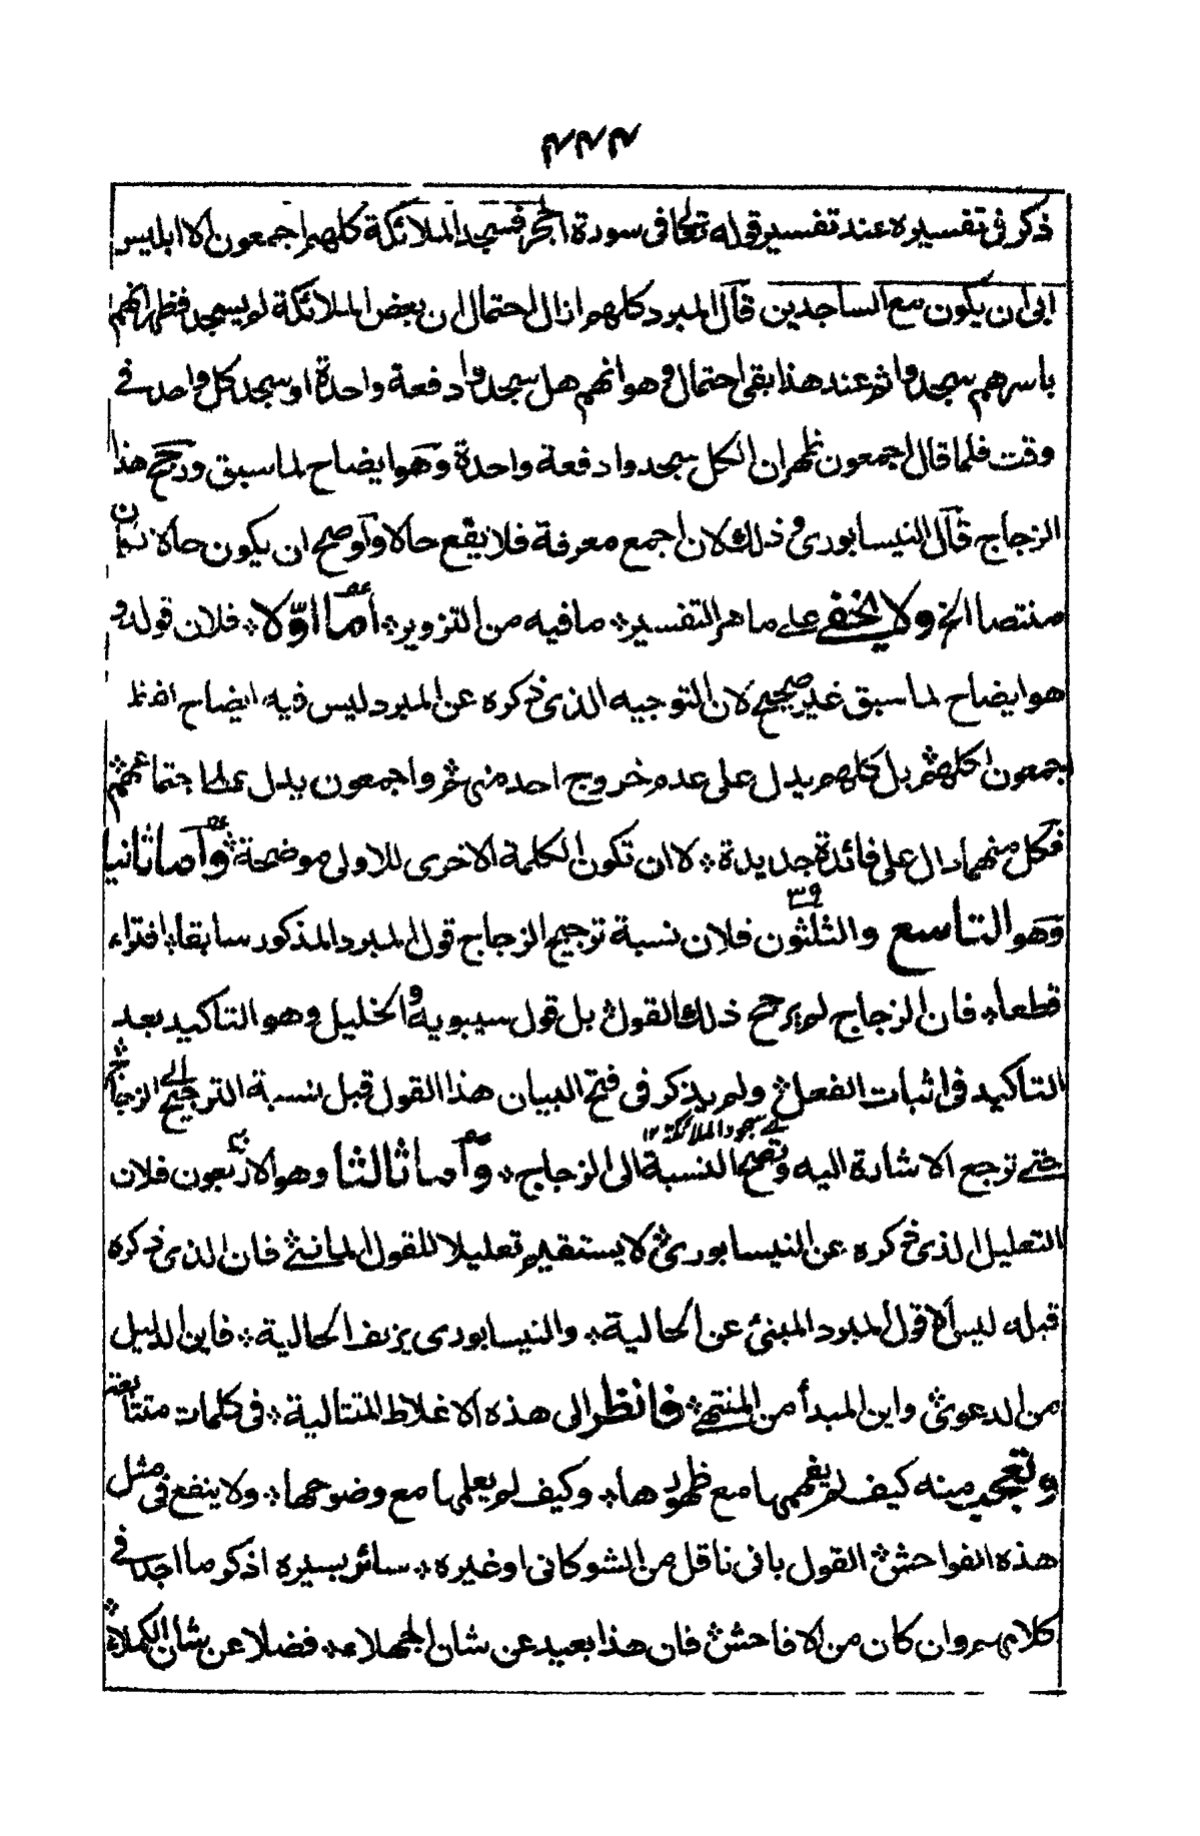 ۴۴۴
ذكر في تفسيره عند تفسير قوله تعالى في سورة الحجر فسجد الملائكة كلهم اجمعون الا ابليس
ابى ان يكون مع الساجدين قال المبرد كلهم ازال احتمال ان بعض الملائكة لم يسجد فظهر انهم
باسرهم سجدوا ثم عند هذا بقي احتمال وهو انهم هل سجدوا دفعة واحدة او سجد كل واحد في
وقت فلما قال اجمعون ظهر ان الكل سجدوا دفعة واحدة وهو ايضاح لما سبق ورجح هذا
الزجاج قال النيسابوري وذلك لان اجمع معرفة فلا يقع حالا ولو صح ان يكون حالا لكان
منتصبا الخ ولا يخفى على ماهر التفسير ما فيه من التزوير اما اولا فلان قوله و
هو ايضاح لما سبق غير صحيح لان التوجيه الذي ذكره عن المبرد ليس فيه ايضاح لفظ
اجمعون لكلهم بل كلهم يدل على عدم خروج احد منهم واجمعون يدل على اجتماعهم
فكل منهما دال على فائدة جديدة لا ان تكون الكلمة الاخرى للاولى موضحة واما ثانيا
وهو التاسع والثلثون ۳۹ فلان نسبة ترجيح الزجاج قول المبرد المذكور سابقا افتراء
قطعا فان الزجاج لم يرجح ذلك القول بل قول سيبويه والخليل وهو التاكيد بعد
التاكيد في اثبات الفعل ولم يذكر في فتح البيان هذا القول قبل نسبة الترجيح الى الزجاج
حتى ترجع الاشارة اليه وتصح النسبة الى الزجاج واما ثالثا وهو الاربعون فلان
اے سجود الملائكة ۱۲
التعليل الذي ذكره عن النيسابوري لا يستقيم تعليلا للقول الماتي فان الذي ذكره
قبله ليس الا قول المبرد المبني عن الحالية والنيسابوري يزيف الحالية فاين الدليل
من الدعوى واين المبدأ من المنتهى فانظر الى هذه الاغلاط المتتالية في كلمات متتابعة
وتعجب منه كيف لم يفهمها مع ظهورها وكيف لم يعلمها مع وضوحها ولا ينفع في مثل
هذه الفواحش القول باني ناقل من الشوكاني او غيره سائر بسيره اذكر ما اجد في
كلامهم وان كان من الافاحش فان هذا بعيد عن شان الجهلاء فضلا عن شان الكملاء